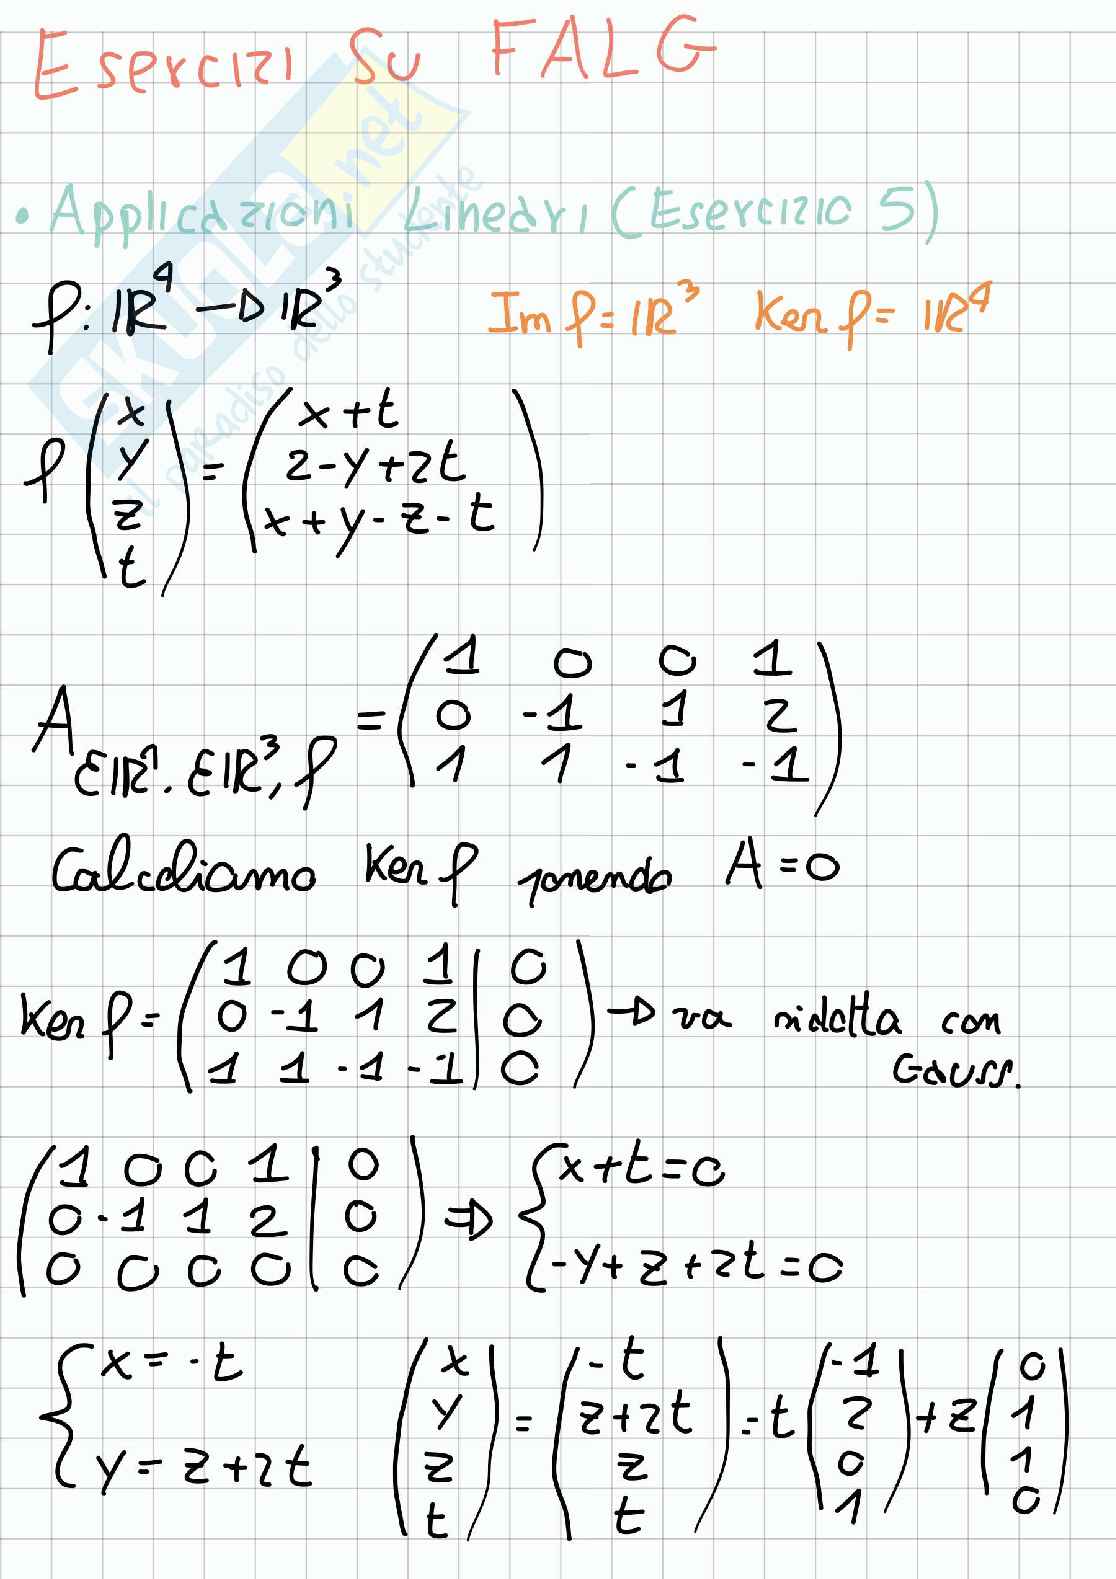 Esercizi Su FALG
• Applicazioni Lineari (Esercizio 5)
f: ℝ⁴ → ℝ³   Im f = ℝ³   Ker f = ℝ⁴
f (x y z t) = (x+t
z-y+2t
x+y-z-t)
A Eℝ⁴, Eℝ³, f = (1 0 0 1
0 -1 1 2
1 1 -1 -1)
Calcoliamo Ker f ponendo A = 0
Ker f = (1 0 0 1 | 0
0 -1 1 2 | 0
1 1 -1 -1 | 0) → va ridotta con
Gauss.
(1 0 0 1 | 0
0 -1 1 2 | 0
0 0 0 0 | 0) ⇒ { x+t=0
-y+z+2t=0
{ x = -t
y = z+2t
(x y z t) = (-t z+2t z t) = t (-1 2 0 1) + z (0 1 1 0)
SKUOLA.net
il paradiso dello studente